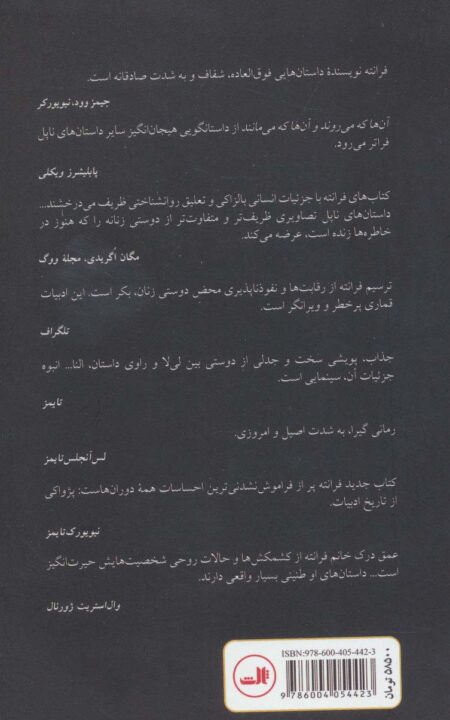 فرانته نویسندهٔ داستان‌هایی فوق‌العاده، شفاف و به شدت صادقانه است.
جیمز وود، نیویورکر
آن‌ها که می‌روند و آن‌ها که می‌مانند از داستانگویی هیجان‌انگیز سایر داستان‌های ناپل
فراتر می‌رود.
پابلیشرز ویکلی
کتاب‌های فرانته با جزئیات انسانی بالزاکی و تعلیق روانشناختی ظریف می‌درخشند...
داستان‌های ناپل تصاویری ظریف‌تر و متفاوت‌تر از دوستی زنانه را که هنوز در
خاطره‌ها زنده است، عرضه می‌کند.
مگان اُگریدی، مجلهٔ ووگ
ترسیم فرانته از رقابت‌ها و نفوذناپذیری محض دوستی زنان، بکر است. این ادبیات
قماری پرخطر و ویرانگر است.
تلگراف
جذاب، پویشی سخت و جدلی از دوستی بین لی‌لا و راوی داستان، النا... انبوه
جزئیات آن، سینمایی است.
تایمز
رمانی گیرا، به شدت اصیل و امروزی.
لس‌آنجلس‌تایمز
کتاب جدید فرانته پر از فراموش‌نشدنی‌ترین احساسات همهٔ دوران‌هاست: پژواکی
از تاریخ ادبیات.
نیویورک‌تایمز
عمق درک خانم فرانته از کشمکش‌ها و حالات روحی شخصیت‌هایش حیرت‌انگیز
است... داستان‌های او طنینی بسیار واقعی دارند.
وال‌استریت ژورنال
ISBN:978-600-405-442-3
9 786004 054423
۵۸۵۰۰ تومان
ثالث